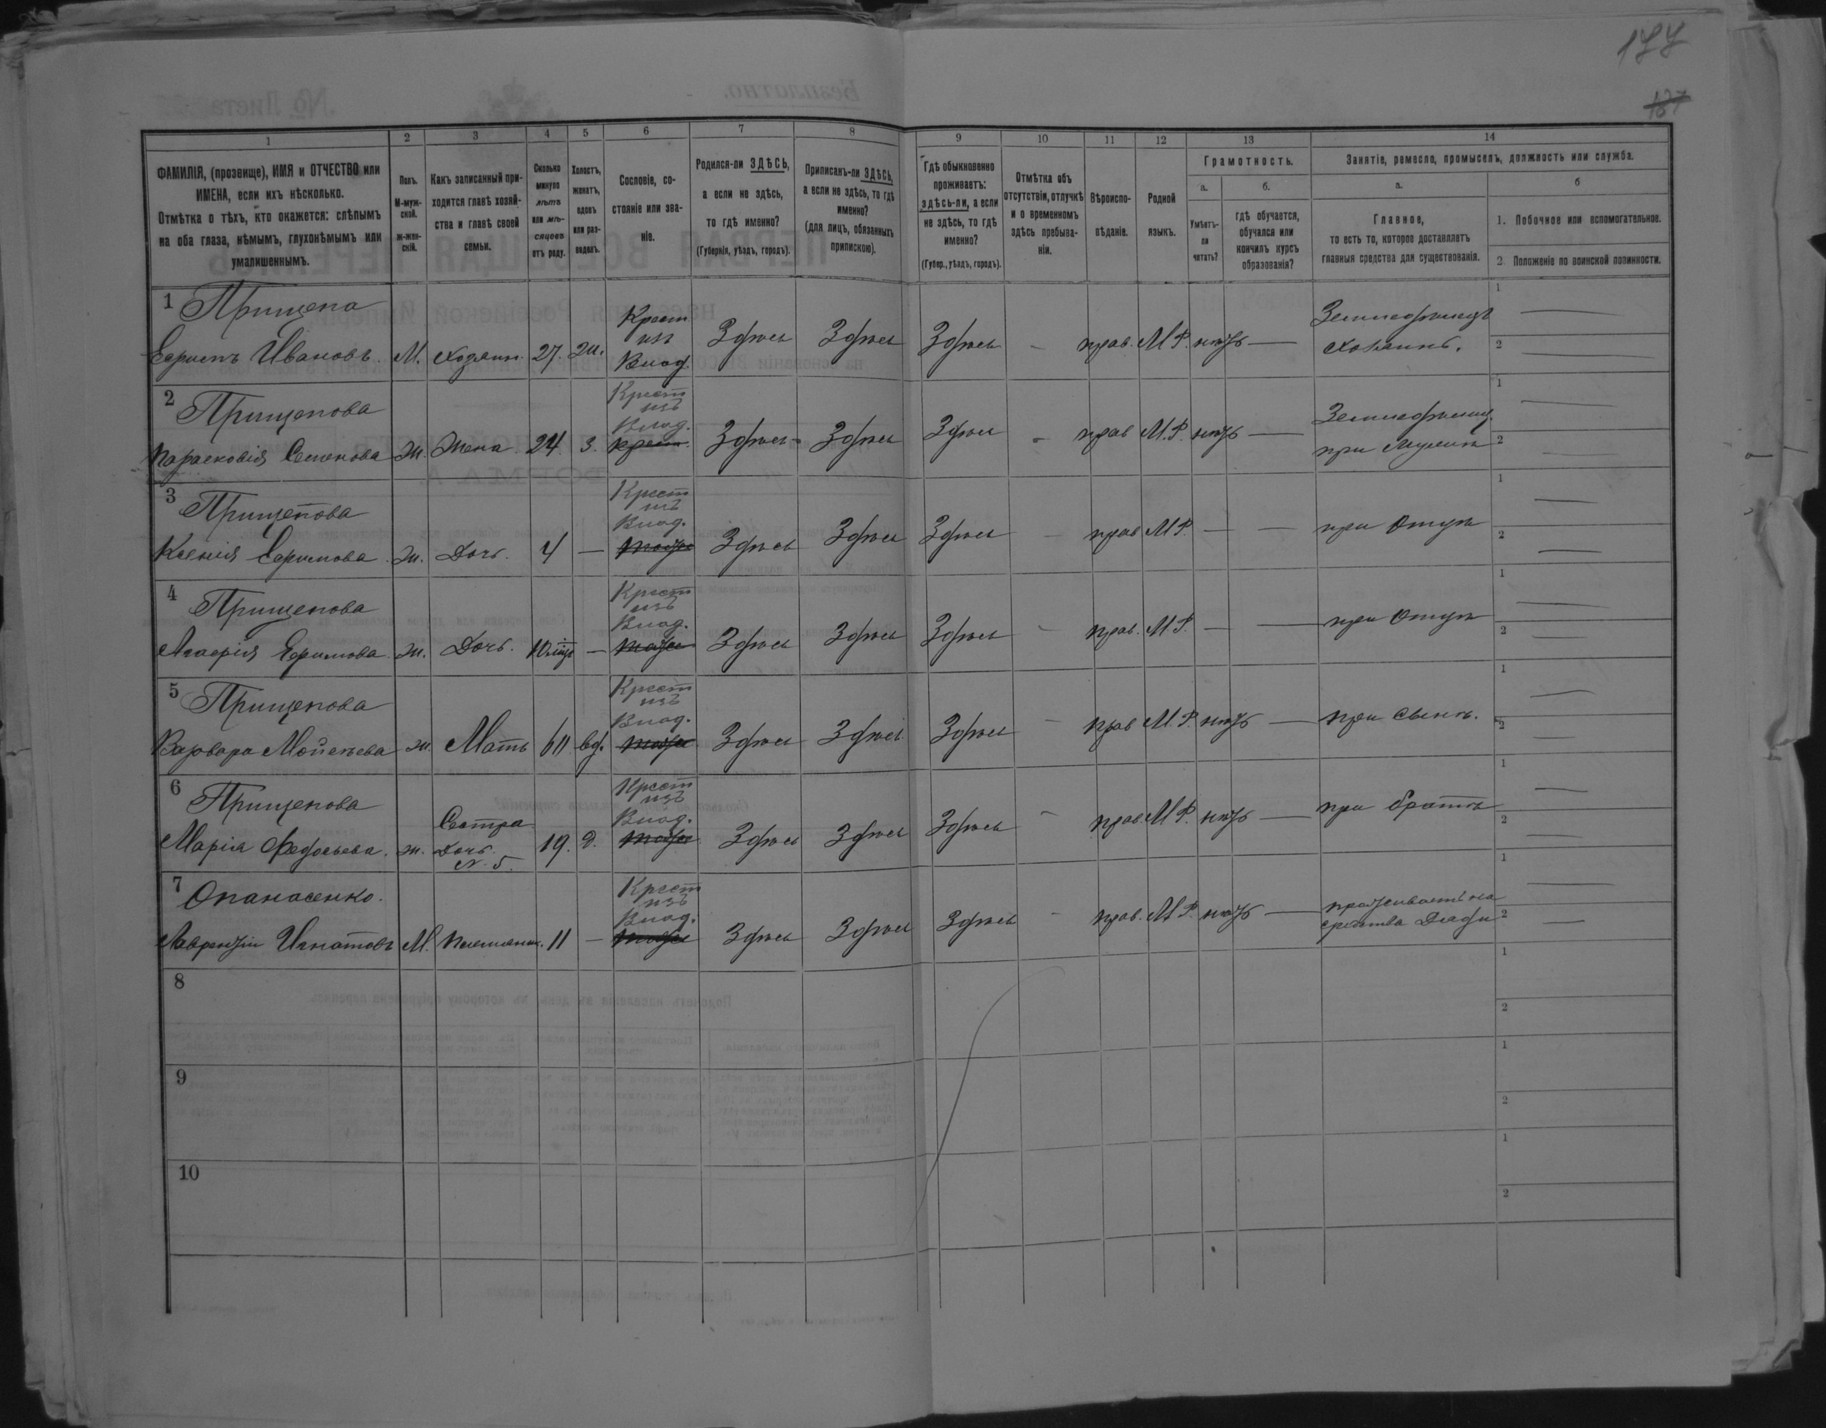 177
187
1 2 3 4 5 6 7 8 9 10 11 12 13 14
ФАМИЛІЯ, (прозвище), ИМЯ и ОТЧЕСТВО или
ИМЕНА, если ихъ нѣсколько.
Отмѣтка о тѣхъ, кто окажется: слѣпымъ
на оба глаза, нѣмымъ, глухонѣмымъ или
умалишеннымъ.
Полъ.
М-муж-
ской.
ж-жен-
скій.
Какъ записанный при-
ходится главѣ хозяй-
ства и главѣ своей
семьи.
Сколько
минуло
лѣтъ
или мѣ-
сяцевъ
отъ роду.
Холостъ,
женатъ,
вдовъ
или раз-
веденъ.
Сословіе, со-
стояніе или зва-
ніе.
Родился-ли ЗДѢСЬ,
а если не здѣсь,
то гдѣ именно?
(Губернія, уѣздъ, городъ).
Приписанъ-ли ЗДѢСЬ,
а если не здѣсь, то гдѣ
именно?
(для лицъ, обязанныхъ
припискою).
Гдѣ обыкновенно
проживаетъ:
здѣсь-ли, а если
не здѣсь, то гдѣ
именно?
(Губер., уѣздъ, городъ).
Отмѣтка объ
отсутствіи, отлучкѣ
и о временномъ
здѣсь пребыва-
ніи.
Вѣроиспо-
вѣданіе.
Родной
языкъ.
Грамотность.
а.
Умѣетъ-
ли
читать?
б.
гдѣ обучается,
обучался или
кончилъ курсъ
образованія?
Занятіе, ремесло, промыселъ, должность или служба.
а.
Главное,
то есть то, которое доставляетъ
главныя средства для существованія.
б
1. Побочное или вспомогательное.
2. Положеніе по воинской повинности.
1 Прищепа
Ефимъ Ивановъ. М. хозяин. 27. ж. Крест изъ Влад. Здѣсь Здѣсь Здѣсь — прав. М.Р. нѣтъ — Земледѣлецъ
хозяинъ.
2 Прищепова
Парасковія Семенова ж. Жена 24 з. Крест изъ Влад. Здѣсь Здѣсь Здѣсь - прав М.Р. нѣтъ — Земледѣлец.
при мужѣ
3 Прищепова
Ксенія Ефимова ж. Дочь. 4 — Крест изъ Влад. тоже Здѣсь Здѣсь Здѣсь — прав М.Р. — — при Отцѣ
4 Прищепова
Агафія Ефимова ж. Дочь. 10 мѣс — Крест изъ Влад. тоже Здѣсь Здѣсь Здѣсь - прав. М.Р. — — при Отцѣ
5 Прищепова
Варвара Мойсеева ж. Мать 60 вд. Крест изъ Влад. тоже Здѣсь Здѣсь Здѣсь — прав М.Р. нѣтъ — при сынѣ.
6 Прищепова
Марія Федосьева. ж. Сестра Дочь N. 5. 19. д. Крест изъ Влад. тоже Здѣсь Здѣсь Здѣсь - прав М.Р. нѣтъ — при братѣ
7 Опанасенко.
Лаврентій Игнатовъ М. Племянник. 11 — Крест изъ Влад. тоже Здѣсь Здѣсь Здѣсь - прав. М.Р. нѣтъ — проживаетъ на
средства Дяди
8
9
10